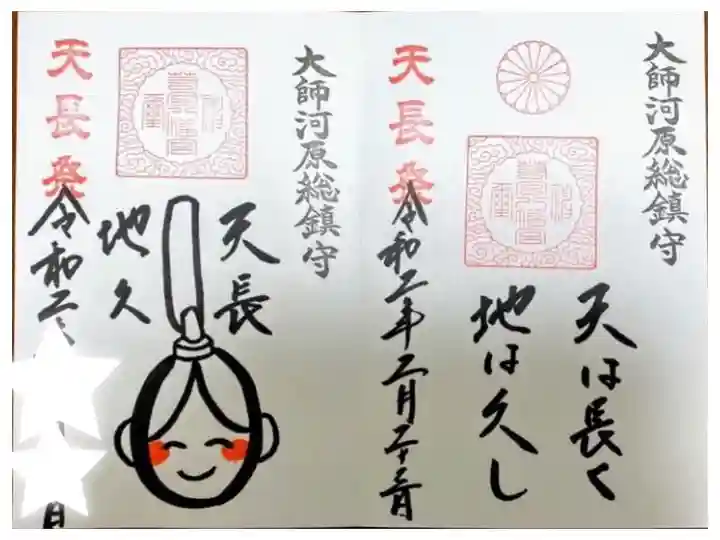 大師河原総鎮守
天は長く
地は久し
天長祭
令和二年二月二十三日
大師河原総鎮守
天長
地久
天長祭
令和二